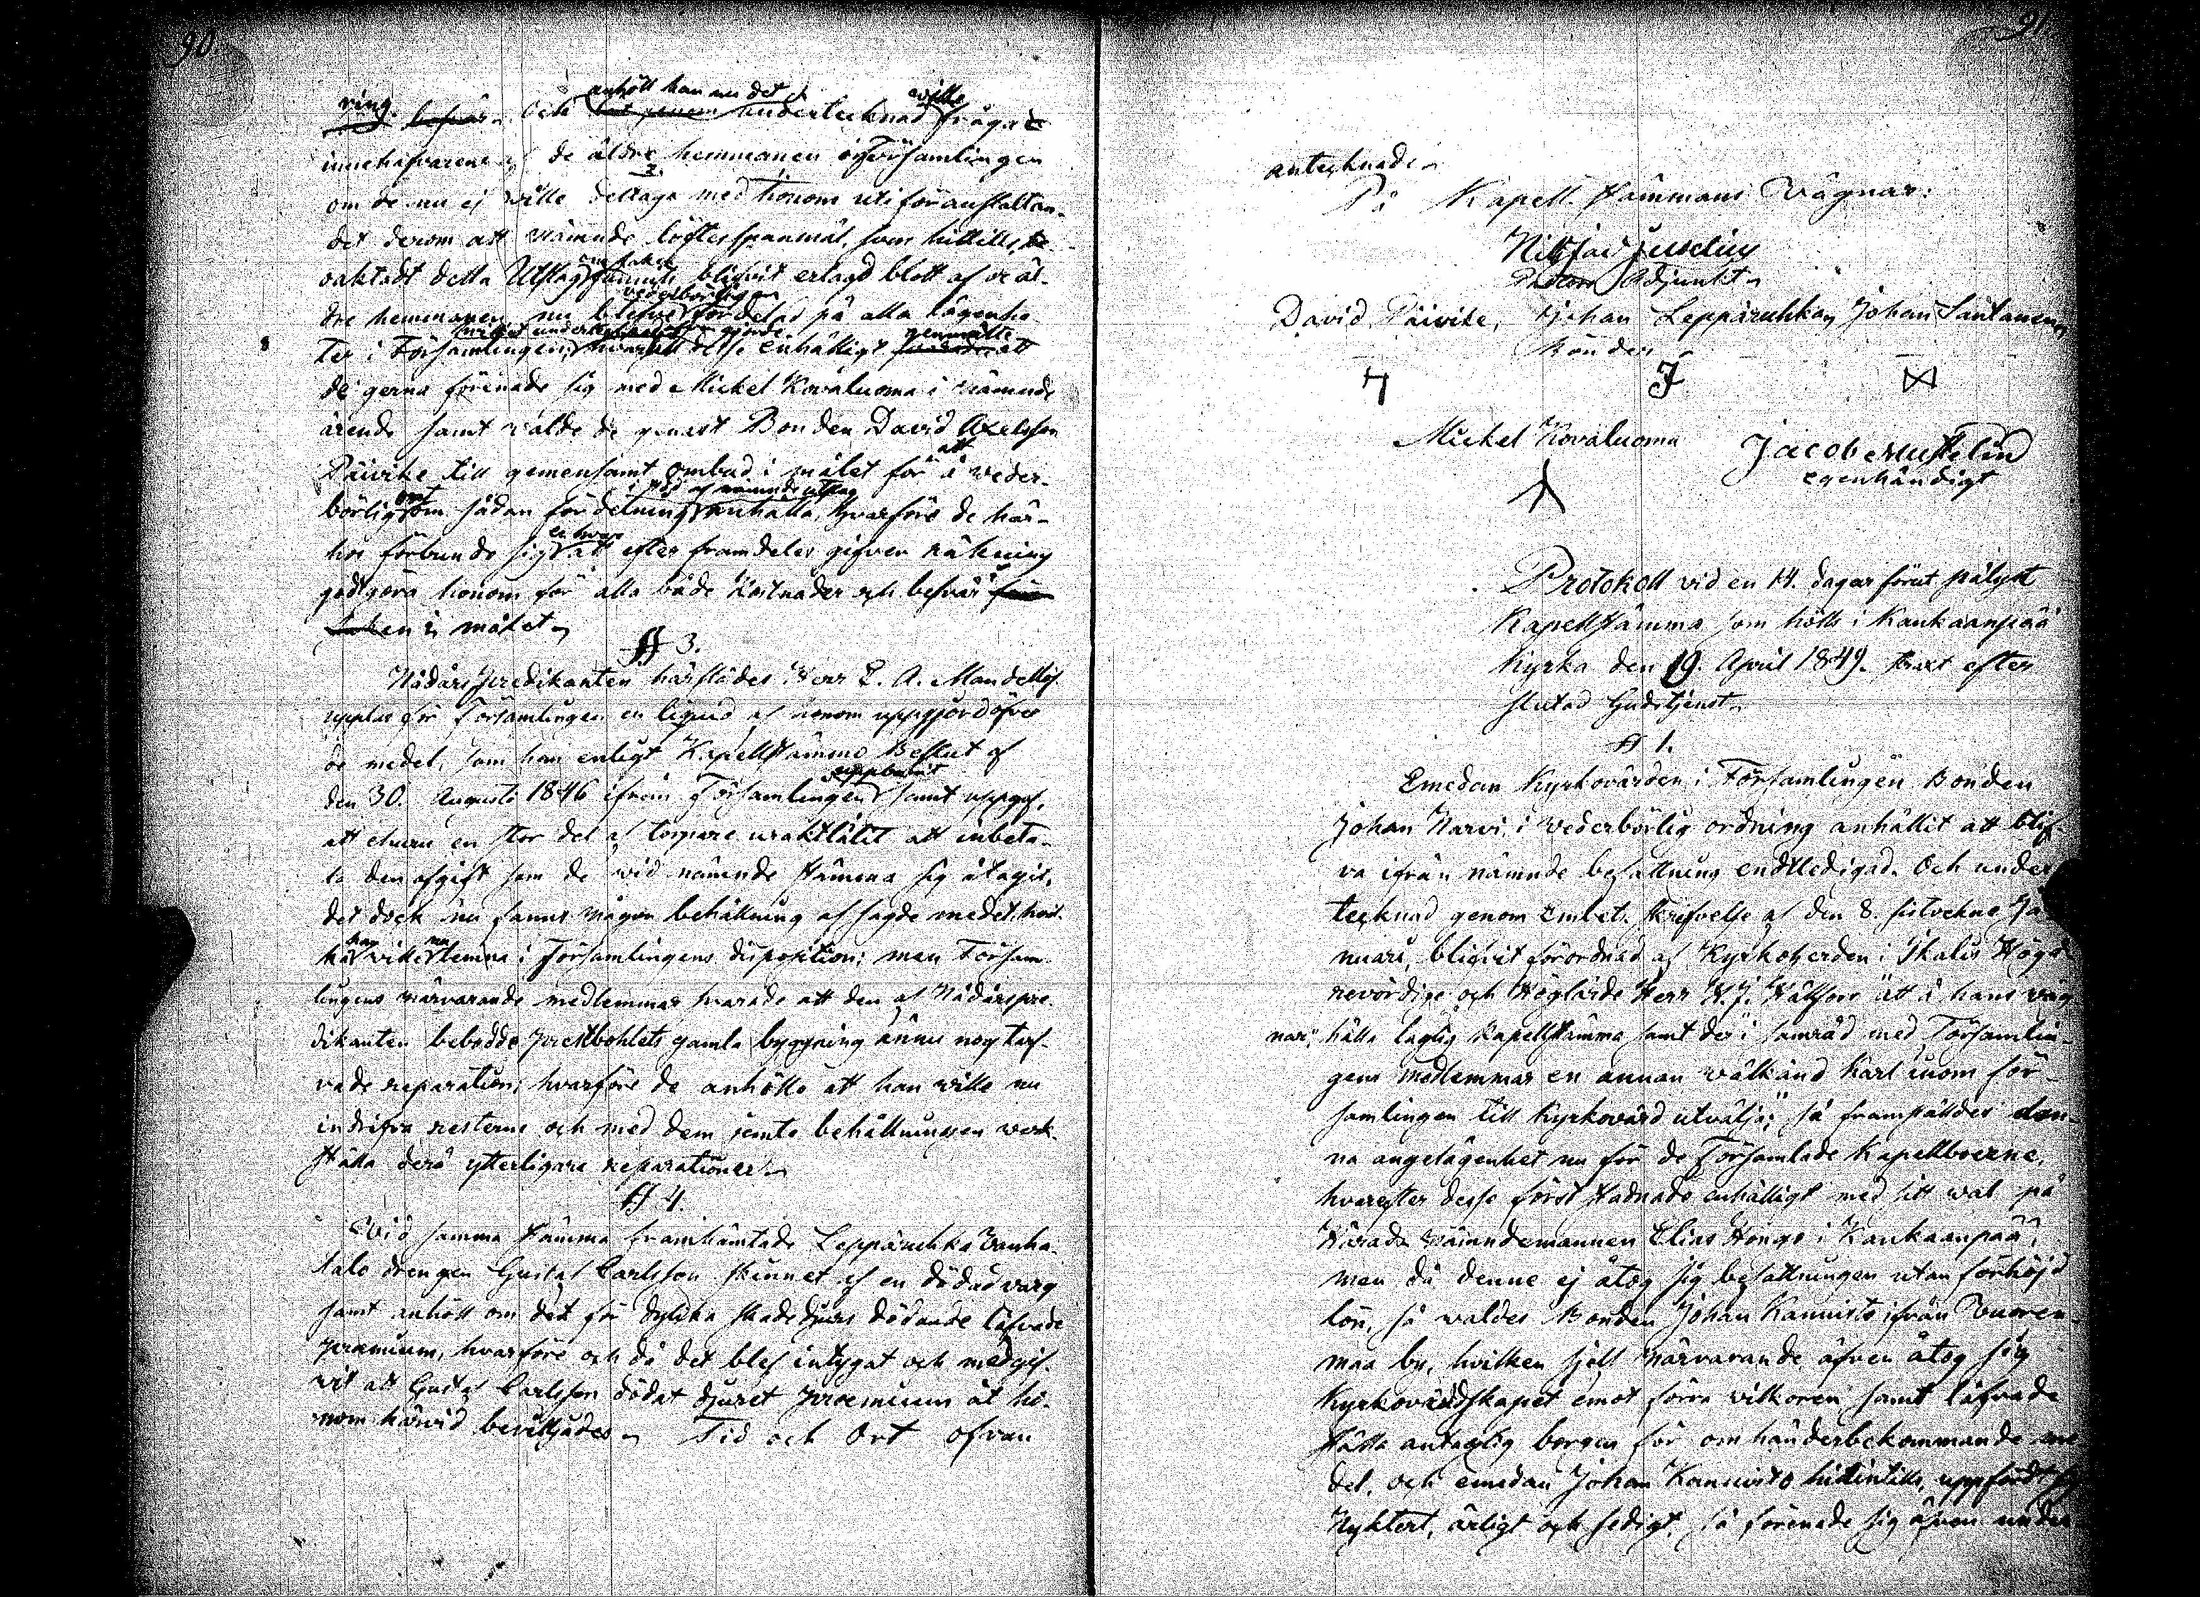 90.
ring. besvär. Och anhöll han nu det undertecknad wille fråga
innehafvarene af de äldre hemmanen i församlingen
om de nu ej wille deltaga med honom uti föranstaltan-
det derom att nämnde löftesspanmål, som hittills, o-
aktadt detta Utslag blifvit erlagd blott af de äl-
dre hemmanen, nu blefve vederbörligen fördelad på alla lägenhe-
ter i Församlingen; hwarpå desse enhälligt genmälte att
de gerna förenade sig med Mickel Kovaluoma i nämnde
ärende samt valde de genast Bonden David Axelsson
Päivike till gemensamt ombud i målet för att å veder-
börlig ort om sådan fördelning i stöd af nämnde utslag anhålla, hvarföre de här-
hos förbundo sig en hvar att efter framdeles gifven räkning
godtgöra honom för alla både kostnader och besvär
en i målet.
§ 3.
Nådårspredikanten härstädes Herr E. A. Mandellöf
upplas för Församlingen en liquid af honom uppgjord öfver
de medel, som han enligt Kapellstämmo Beslut af
den 30. Augusti 1846 ifrån Församlingen uppburit samt uppgaf,
att ehuru en stor del af torpare uraktlåtit att inbeta-
la den afgift som de vid nämnde stämma sig åtagit,
det dock nu fanns någon behållning af sagde medel, hvil-
ka han ville nu lemna i Församlingens disposition; men Försam-
lingens närvarande medlemmar svarade att den af Nådårspre-
dikanten bebodde prestbohlets gamla byggning ännu nog tarf-
vade reparation, hvarföre de anhöllo att han wille nu
indrifva resterne och med dem jemte behållningen verk-
ställa derå ytterligare reparationer.
§ 4.
Vid samma stämma framhämtade Leppäruhka Vanha-
talo drengen Gustaf Carlsson skinnet af en dödad varg
samt anhöll om det för dylika skadedjurs dödande låfvade
præmium, hvarföre och då det blef intygat och medgif-
vit att Gustaf Carlsson dödat djuret præmium åt ho-
nom härvid beviljades. Tid och Ort ofvan
91.
antecknade.
På Kapell Stämmans Vägnar:
Juselius
Pastors Adjunkt.
David Päivike, Johan Leppäruhka, Johan Santanen,
Bönder
Mickel Kovaluoma Jacob Mustelin
egenhändigt
Protokoll vid en 14. dagar förut pålyst
Kapellstämma som hölls i Kankaanpää
Kyrka den 19. April 1849. straxt efter
slutad Gudstjenst.
§ 1.
Emedan Kyrkovärden i Församlingen Bonden
Johan Narvi i vederbörlig ordning anhållit att blif-
va ifrån nämnde befattning endtledigad. Och under
tecknad genom Embet. skrifvelse af den 8. sistvekne Ja
nuari, blifvit förordnad af Kyrkoherden i Ikalis Hög
revördige och Höglärde Herr H. J. Hällfors "att å hans väg
nar," hålla laglig Kapellstämma samt der "i samråd med Församlin-
gens medlemmar en annan välkänd Karl inom för-
samlingen till Kyrkovärd utvälja;" så framställdes den-
na angelägenhet nu för de Församlade Kapellboerne,
hvarefter desse först stadnade enhälligt med sitt wal på
Härads nämndemannen Elias Hongo i Kankaanpää;
men då denne ej åtog sig befattningen utan förhöjd
lön, så waldes Bonden Johan Kannisto ifrån Vuoren-
maa by, hvilken sjelf närvarande äfven åtog sig
Kyrkovärdskapet emot förra vilkoren samt låfvade
ställa antaglig borgen för om händerbekommande me
del, och emedan Johan Kannisto hittintills, uppfördt sig
Nyktert, ärligt och sedigt, så förenade sig äfven under